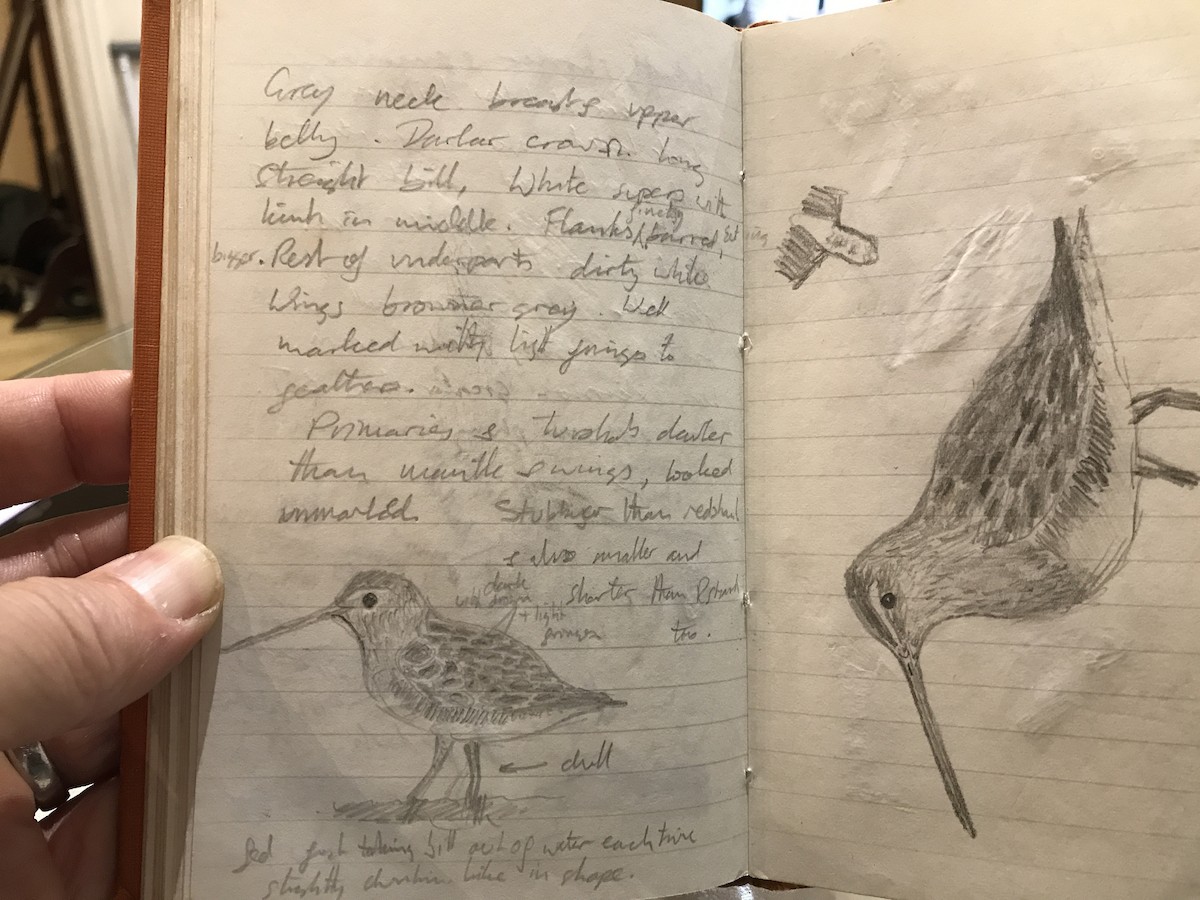 Grey neck breasts upper
belly. Darker crown. Long
Straight bill, White supers with
kink in middle. Flanks finely barred,
bigger. Rest of underparts dirty white
Wings brownier grey. Well
marked with light fringes to
feathers.
Primaries & tertials darker
than mantle & wings, looked
unmarked. Stubbier than redshank
& also smaller and
shorter than Rshank
too.
dark
+ light
fringes
dull
fed fast taking bill out of water each time
slightly dunlin like in shape.